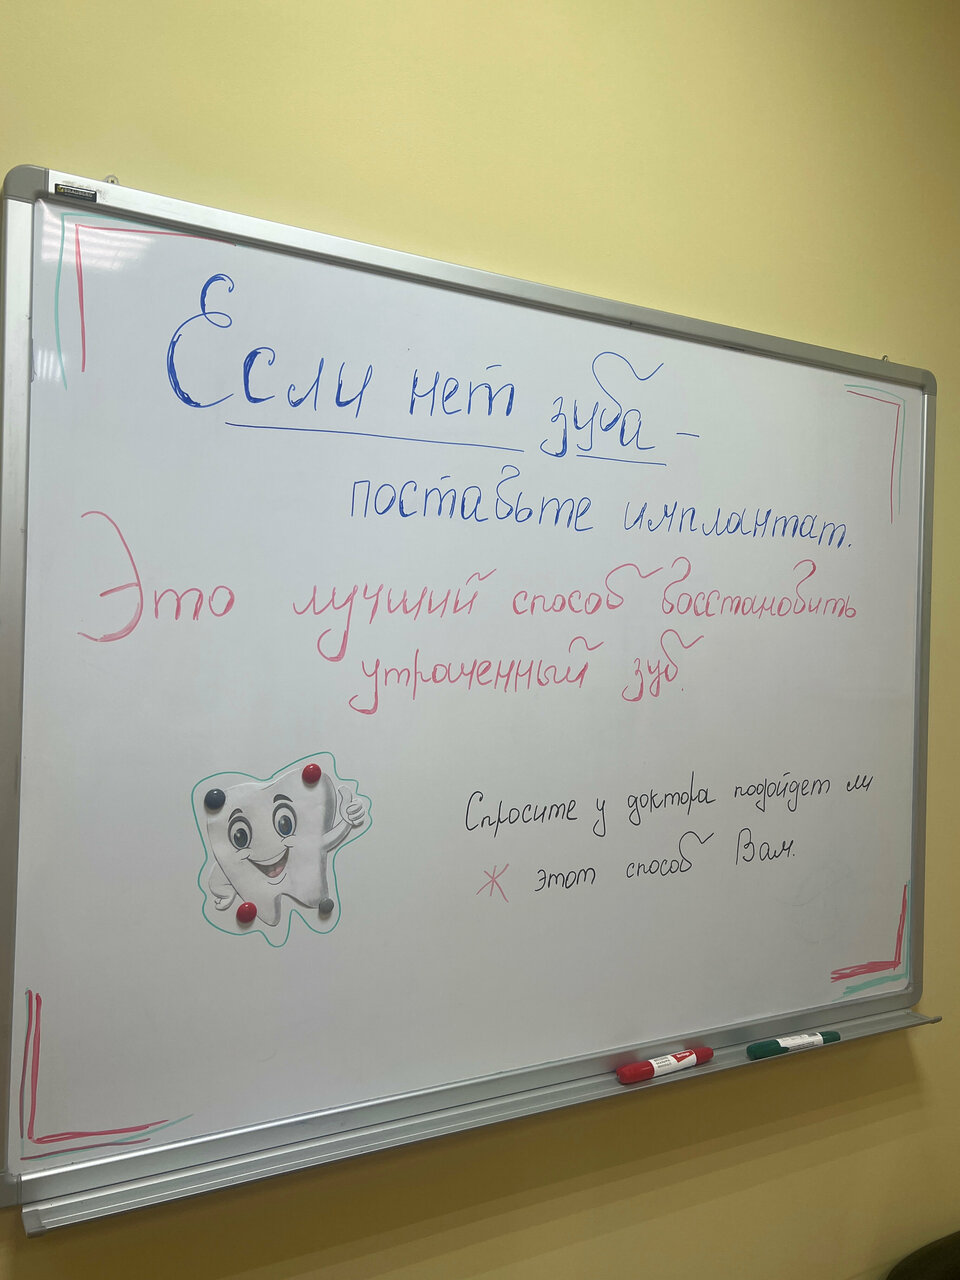 Если нет зуба –
поставьте имплантат.
Это лучший способ восстановить
утраченный зуб.
Спросите у доктора подойдет ли
* этот способ Вам.